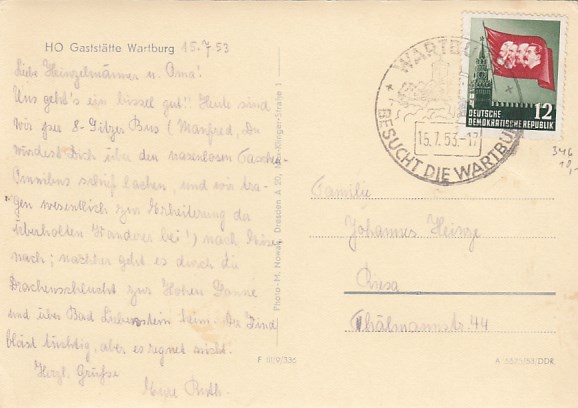 HO Gaststätte Wartburg 15.7.53
Liebe Heinzelmänner u. Oma!
Uns geht's ein bissel gut!! Heute sind
wir per 8-Sitzer Bus (Manfred, Du
würdest Dich über den nasenlosen Taschen-
Omnibus schief lachen, und wir tra-
gen wesentlich zur Erheiterung der
überholten Wanderer bei!) nach
nach; nachher geht es durch die
Drachenschlucht zur Hohen Sonne
und über Bad Liebenstein heim. Der Wind
bläst tüchtig, aber es regnet nicht.
Herzl. Grüße
Eure Ruth.
Photo-M. Nowak, Dresden A 20, -Straße 1
F III/9/53c
WARTBURG
BESUCHT DIE WARTBURG
15.7.53.-17
12
DEUTSCHE
DEMOKRATISCHE REPUBLIK
346
Familie
Johannes Heinze
Riesa
Thälmannstr. 44
DDR